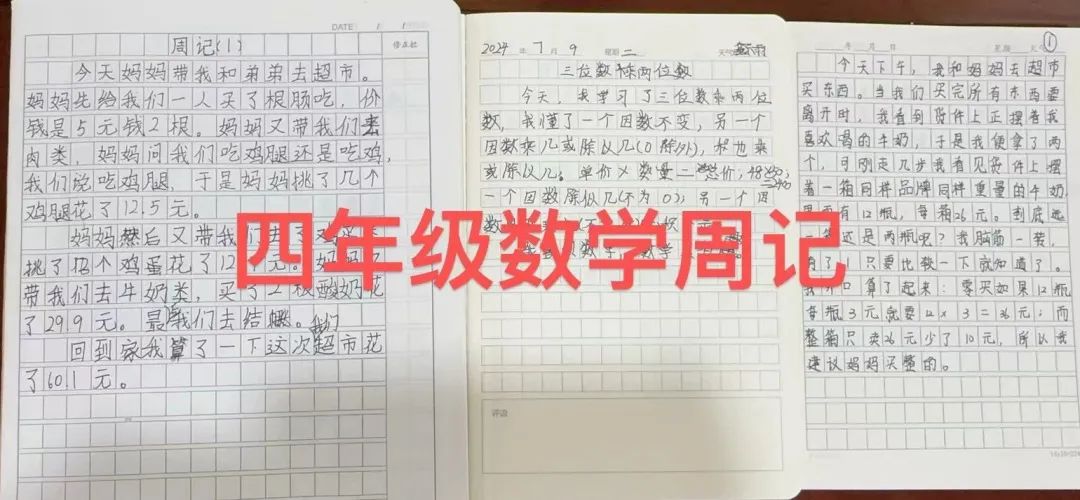 DATE / /
周记(1)
修正栏
今天妈妈带我和弟弟去超市。
妈妈先给我们一人买了根肠吃，价
钱是5元钱2根。妈妈又带我们去
肉类，妈妈问我们吃鸡腿还是吃鸡，
我们说吃鸡腿，于是妈妈挑了几个
鸡腿花了12.5元。
妈妈然后又带我们去了
挑了 个鸡蛋花了12. 元。妈妈
带我们去牛奶类，买了 酸奶花
了29.9元。最后我们去结 。
回到家我算了一下这次我们超市花
了60.1元。
2024年7月9 星期二 天气
三位数乘两位数
今天，我学习了三位数乘两位
数，我懂了一个因数不变，另一个
因数乘几或除以几(0除外)，积也乘
或除以几。单价×数量=总价，
一个因数除以几(不为0)；另一个因
数
数学
评语
年 月 日 星期 天气
①
今天下午，我和妈妈去超市
买东西。当我们买完所有东西要
离开时，我看到货件上正摆着我
喜欢喝的牛奶，于是我便拿了两
个，可刚走几步我看见货件上摆
着一箱同样品牌同样重量的牛奶，
有12瓶，每箱26元。到底选
一箱还是两瓶呢？我脑筋一转，
有了！只要比较一下就知道了。
算了起来：零买如果12瓶
每瓶3元就要12×3=36元；而
整箱只卖26元少了10元，所以我
建议妈妈买整的。
四年级数学周记